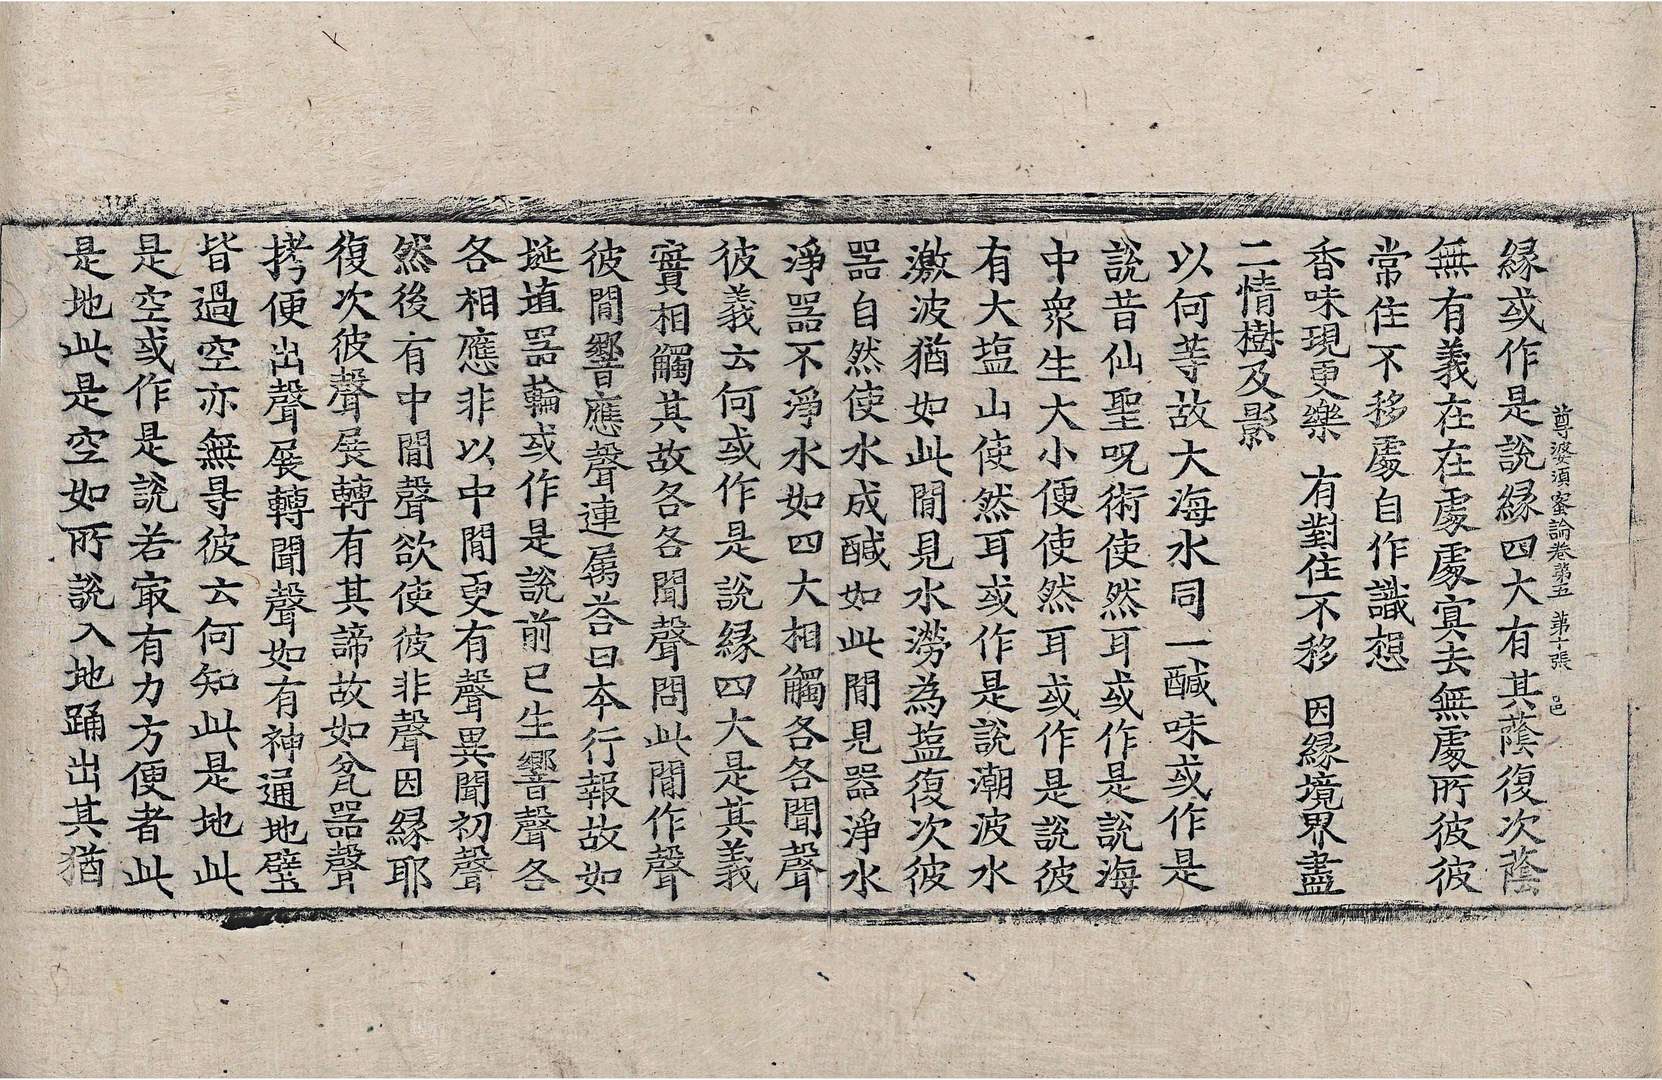 尊婆湏蜜論卷第五 第十張 邑
縁或作是說縁四大有其蔭復次蔭
無有義在在處處𡨋去無處所彼彼
常住不移處自作識想
香味現更樂 有對住不移 因縁境界盡
二情樹及影
以何等故大海水同一醎味或作是
說昔仙聖呪術使然耳或作是說海
中衆生大小便使然耳或作是說彼
有大塩山使然耳或作是說潮波水
激波猶如此閒見水澇為塩復次彼
器自然使水成醎如此閒見器淨水
淨器不淨水如四大相觸各各聞聲
彼義云何或作是說縁四大是其義
實相觸其故各各聞聲問此閒作聲
彼閒響應聲連属荅曰本行報故如
埏埴器輪或作是說前已生響聲各
各相應非以中閒更有聲異聞初聲
然後有中閒聲欲使彼非聲因縁耶
復次彼聲展轉有其諦故如瓮器聲
拷便出聲展轉聞聲如有神通地壁
皆過空亦無㝵彼云何知此是地此
是空或作是說若㝡有力方便者此
是地此是空如所說入地踊出其猶